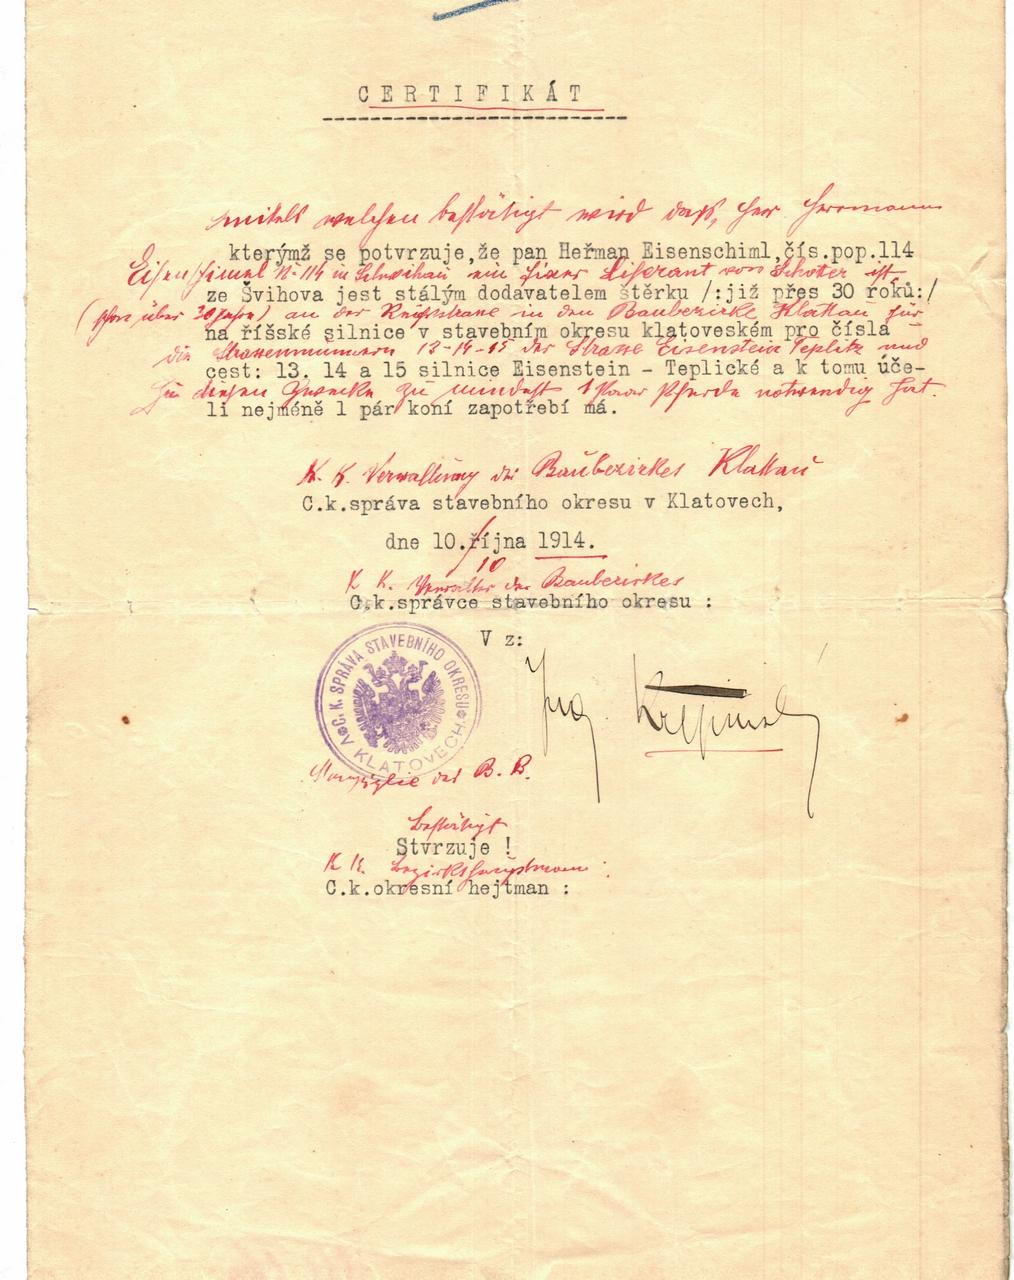 CERTIFIKÁT
mittels welchen bestätigt wird daß, Herr Herrmann
kterýmž se potvrzuje,že pan Heřman Eisenschiml,čís.pop.114
Eisenschimel No 114 in Schwihau ein fixer Liferant von Schotter ist
ze Švihova jest stálým dodavatelem štěrku /:již přes 30 roků:/
(schon über 30 Jahre) an der Reichstrasse in den Baubezirke Klattau für
na říšské silnice v stavebním okresu klatoveském pro čísla
die Strassennummern 13-14-15 der Strasse Eisenstein Teplitz und
cest: 13. 14 a 15 silnice Eisenstein - Teplické a k tomu úče-
zu diesen Zwecke zu mindest 1 Paar Pferde notwendig hat.
li nejméně 1 pár koní zapotřebí má.
K. K. Verwaltung des Baubezirkes Klattau
C.k.správa stavebního okresu v Klatovech,
dne 10.října 1914.
10
K K. Verwalter des Baubezirkes
C,k.správce stavebního okresu :
V z:
C. K. SPRÁVA STAVEBNÍHO OKRESU V KLATOVECH
Ing.
des B. B.
Bestätigt
Stvrzuje !
K K. Bezirkshauptmann :
C.k.okresní hejtman :